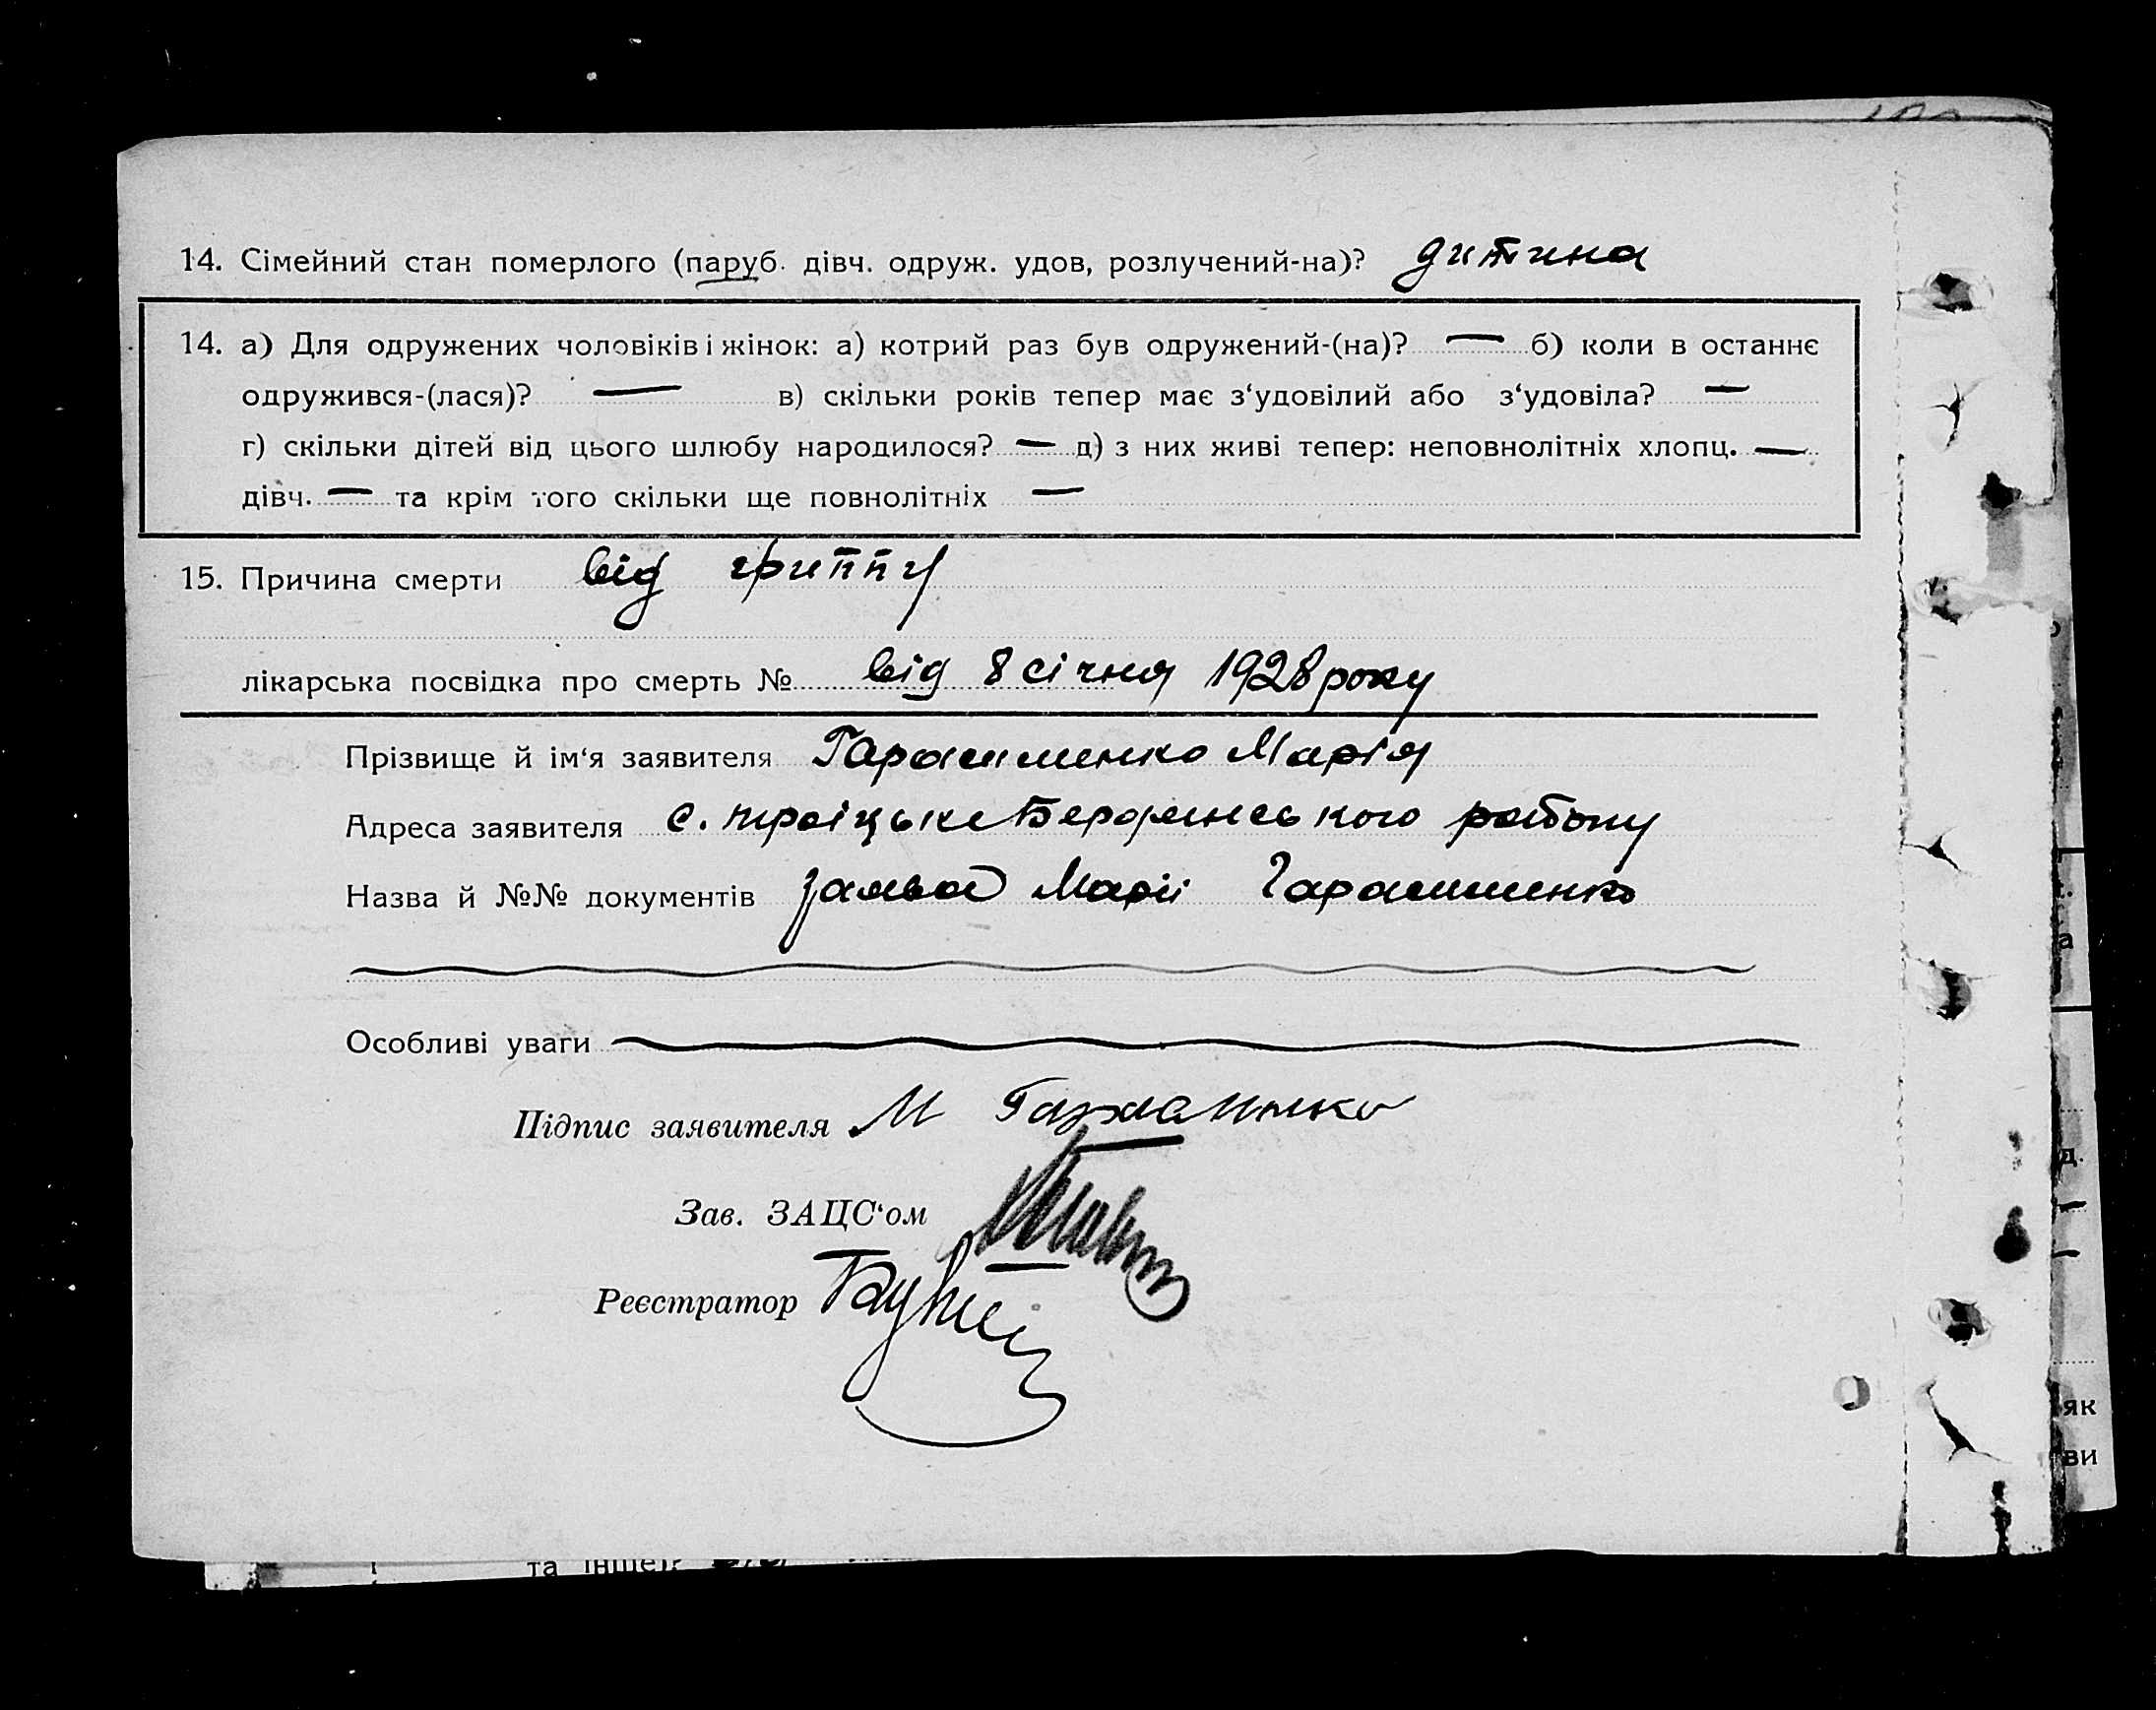 14. Сімейний стан померлого (паруб. дівч. одруж. удов, розлучений-на)? дитина
14. а) Для одружених чоловіків і жінок: а) котрий раз був одружений-(на)? — б) коли в останнє
одружився-(лася)? — в) скільки років тепер має з‘удовілий або з‘удовіла? —
г) скільки дітей від цього шлюбу народилося? — д) з них живі тепер: неповнолітніх хлопц. —
дівч. — та крім того скільки ще повнолітніх —
15. Причина смерти від гриппу
лікарська посвідка про смерть № від 8 січня 1928 року
Прізвище й ім‘я заявителя Гарашименко Марія
Адреса заявителя с. троіцьке Бердянського району
Назва й №№ документів заява Маріі Гарашименко
Особливі уваги
Підпис заявителя М
Зав. ЗАЦС‘ом
Реєстратор
та інше)?
д.
як
ви